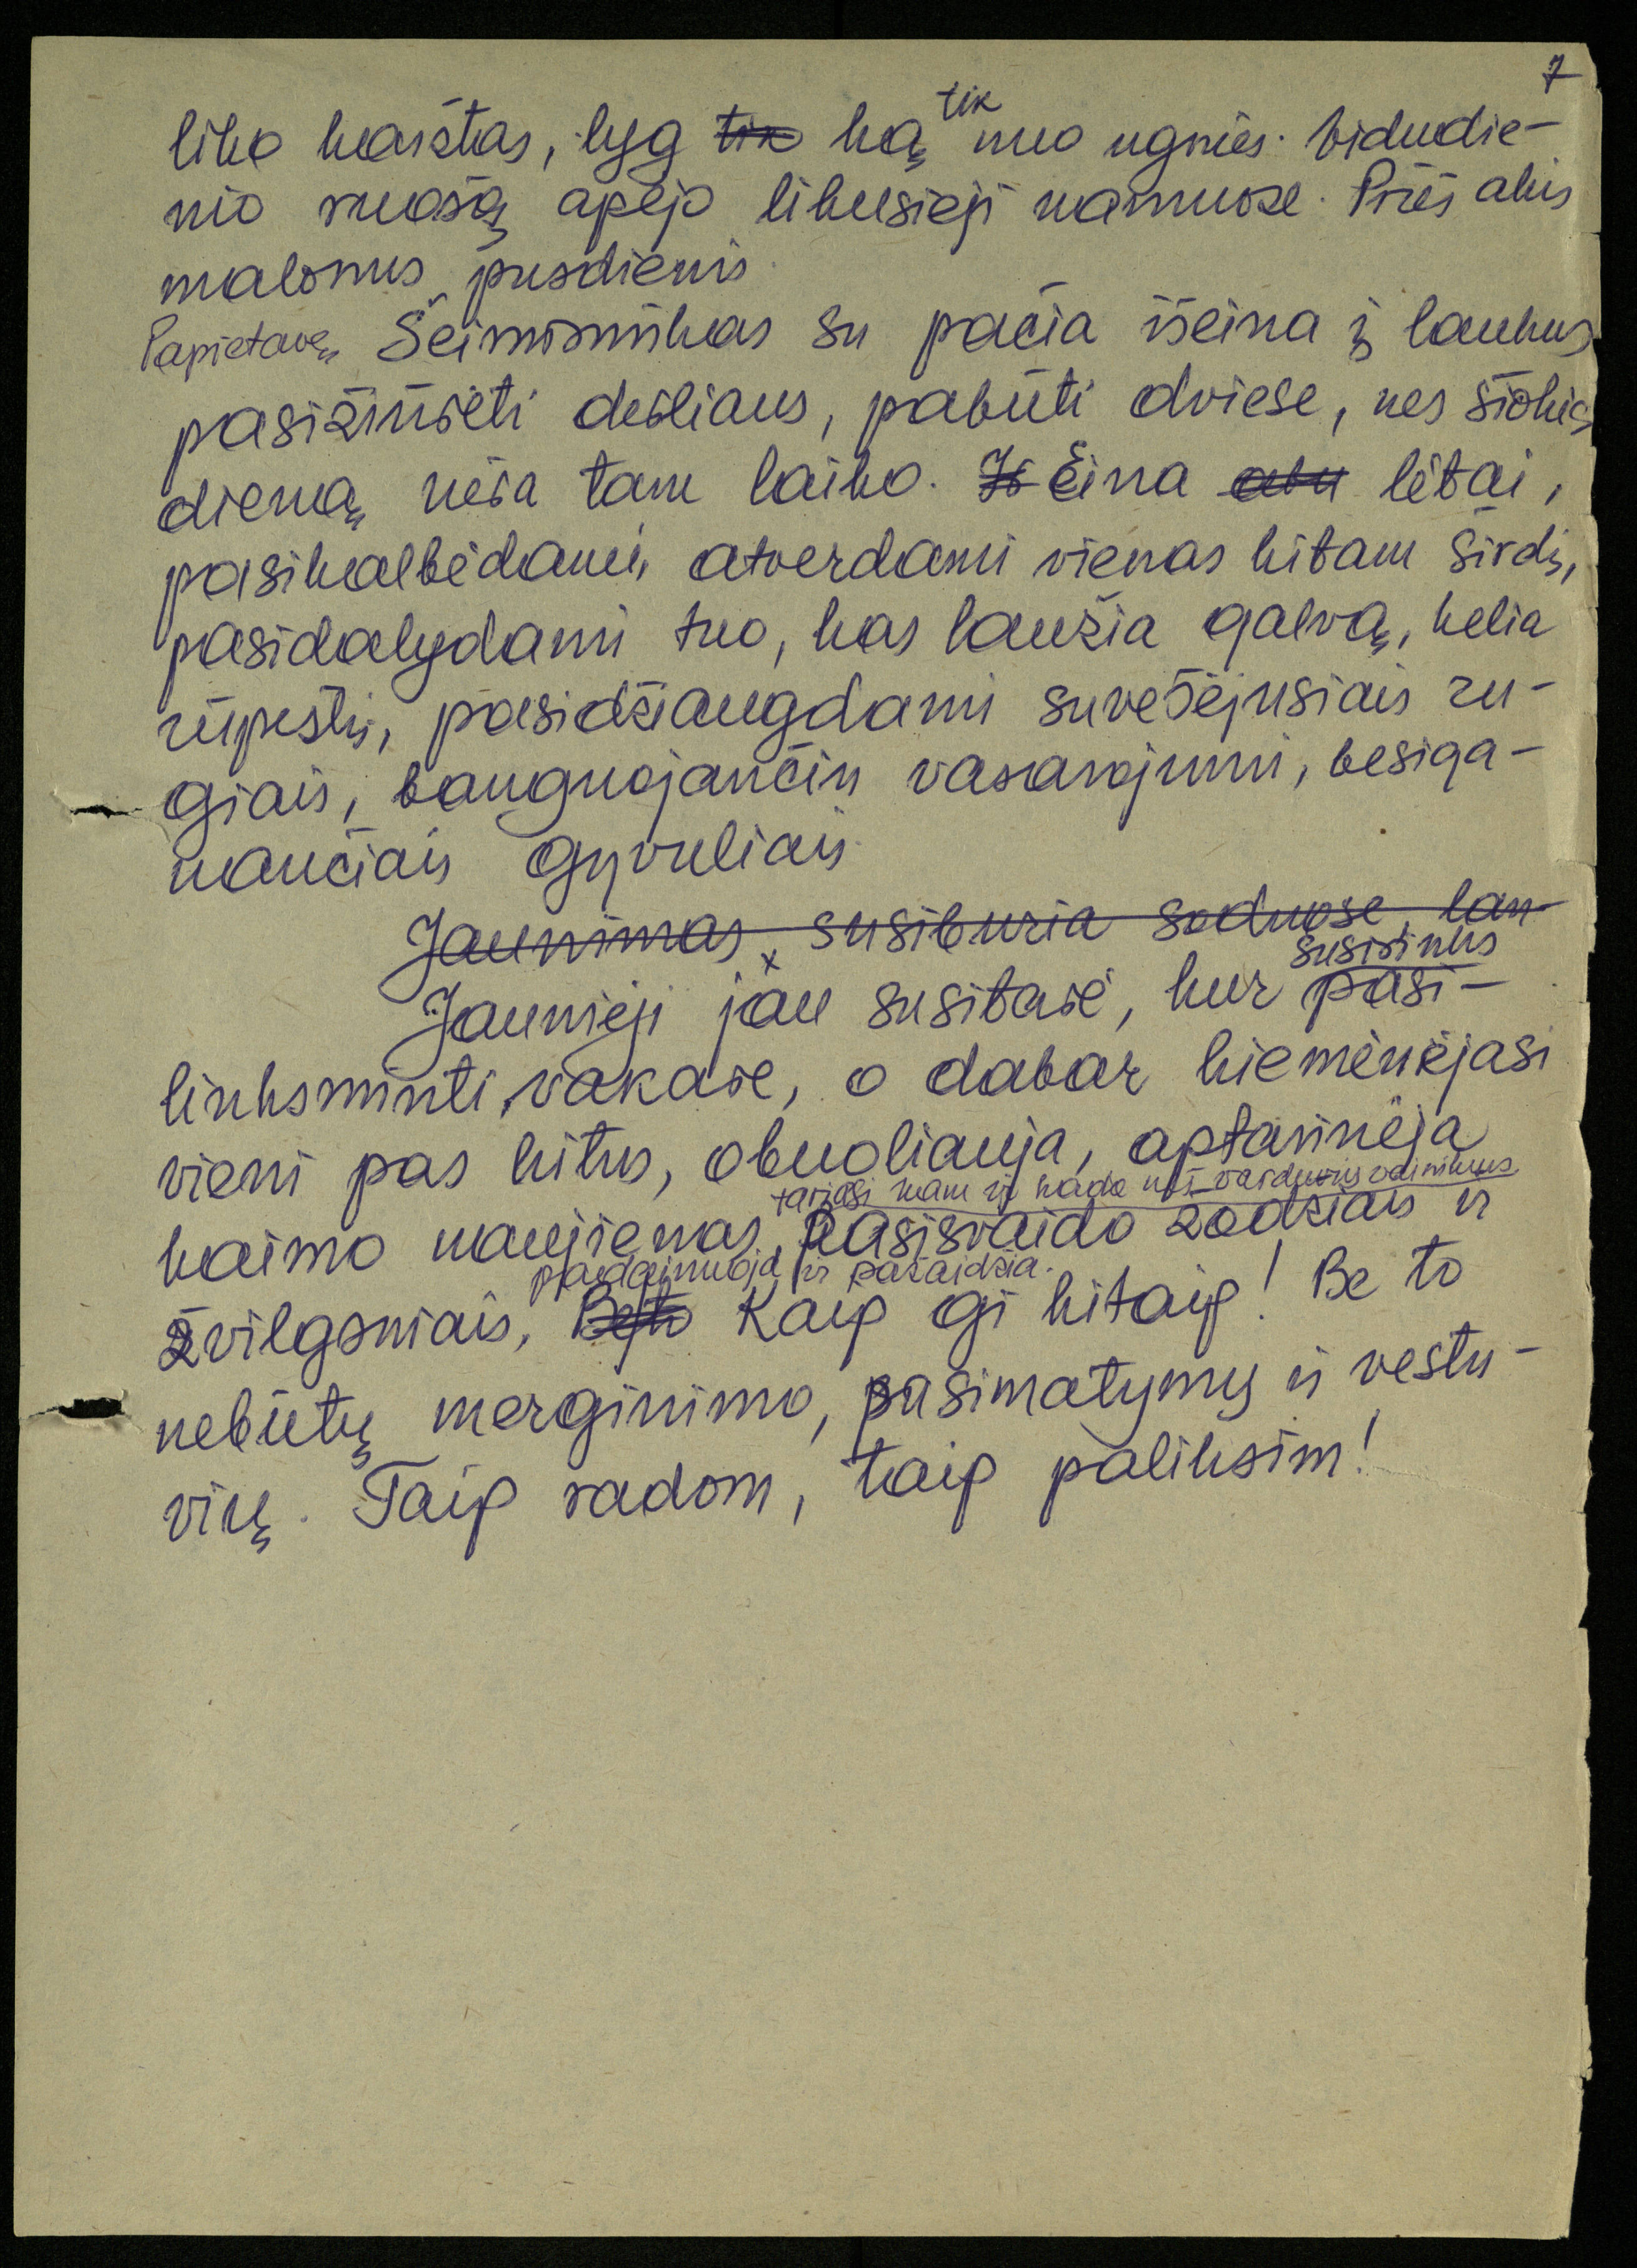 7
liko karštas, lyg tik ką tik nuo ugnies. Vidudie-
nio ruošą apėjo likusieji namuose. Prieš akis
malonus pusdienis.
Papietavę Šeimininkas su pačia išeina į laukus
pasižiūrėti derliaus, pabūti dviese, nes šiokią
dieną nėra tam laiko. Ji Eina abu lėtai,
pasikalbėdami, atverdami vienas kitam širdį,
pasidalydami tuo, kas laužia galvą, kelia
rūpestį, pasidžiaugdami suvešėjusiais ru-
giais, banguojančiu vasarojumi, besiga-
nančiais gyvuliais.
Jaunimas susiburia soduose, lan-
susirinkus
Jaunieji jau susitarė, kur pasi-
linksminti vakare, o dabar kiemėnėjasi
vieni pas kitus, obuoliauja, aptarinėja
tariasi kam ir kada neš varduvių vainikus
kaimo naujienas, pasisvaido žodžiais ir
padainuoja ir pažaidžia.
žvilgsniais, Be to Kaip gi kitaip! Be to
nebūtų merginimo, pasimatymų ir vestu-
vių. Taip radom, taip paliksim!